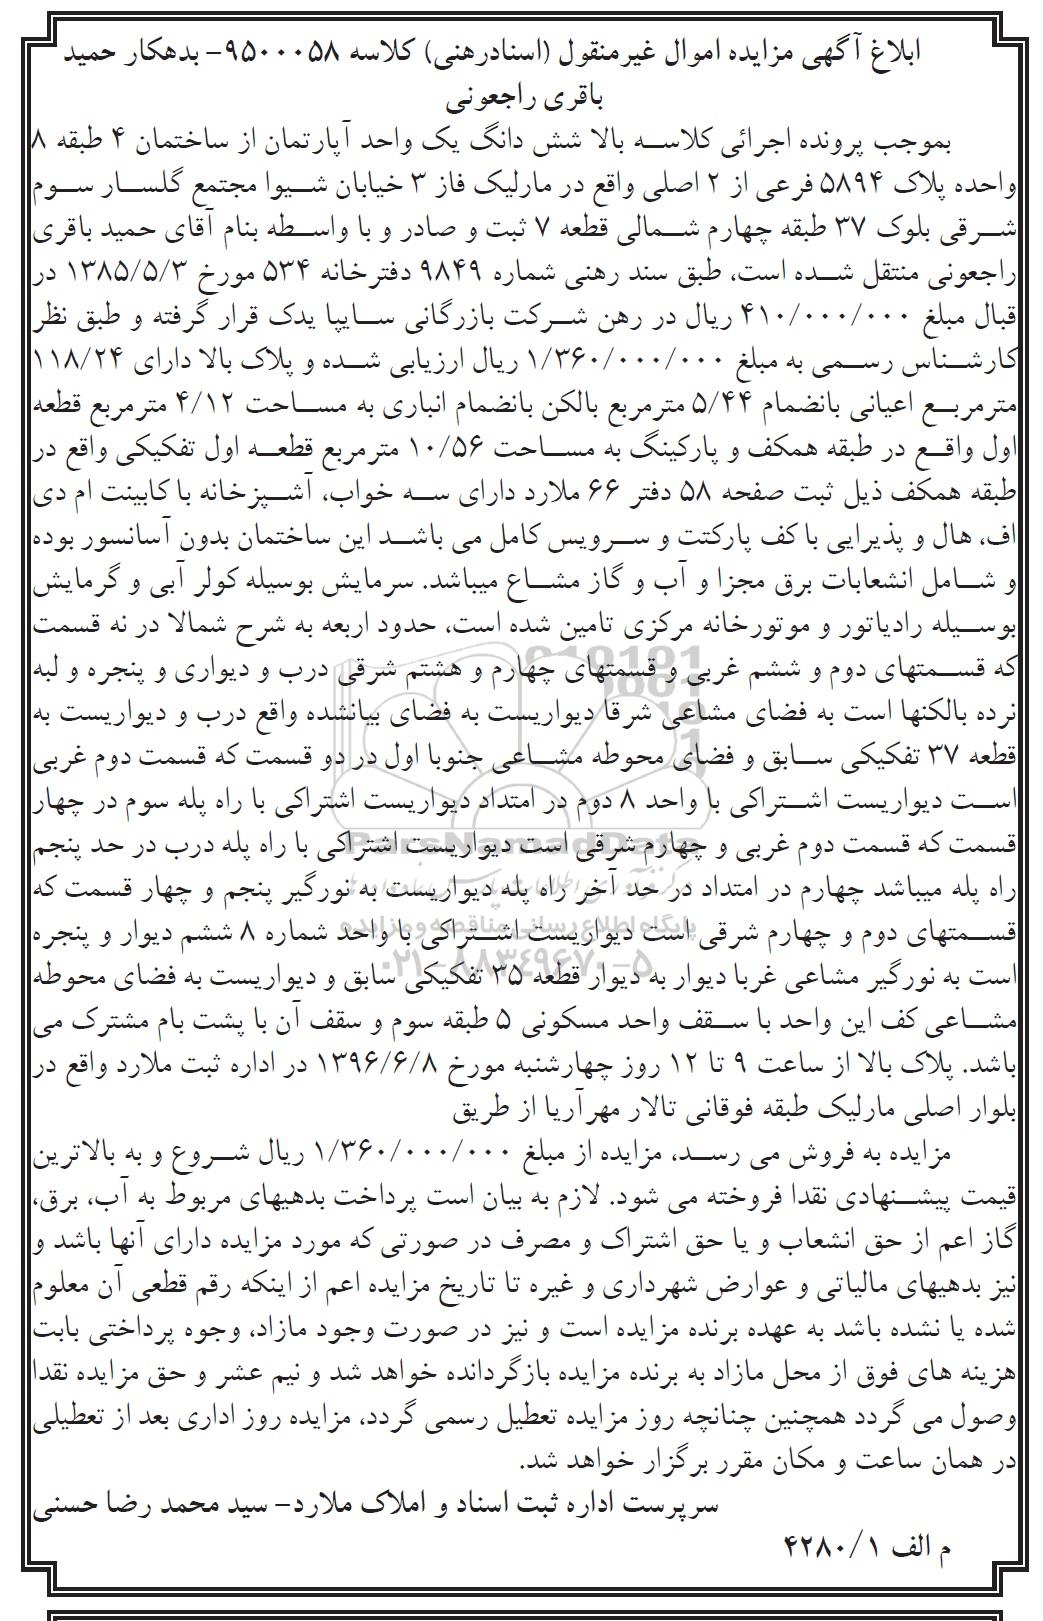 ابلاغ آگهی مزایده اموال غیرمنقول (اسنادرهنی) کلاسه ۹۵۰۰۰۵۸- بدهکار حمید
باقری راجعونی
بموجب پرونده اجرائی کلاسه بالا شش دانگ یک واحد آپارتمان از ساختمان ۴ طبقه ۸
واحده پلاک ۵۸۹۴ فرعی از ۲ اصلی واقع در مارلیک فاز ۳ خیابان شیوا مجتمع گلسار سوم
شرقی بلوک ۳۷ طبقه چهارم شمالی قطعه ۷ ثبت و صادر و با واسطه بنام آقای حمید باقری
راجعونی منتقل شده است، طبق سند رهنی شماره ۹۸۴۹ دفترخانه ۵۳۴ مورخ ۱۳۸۵/۵/۳ در
قبال مبلغ ۴۱۰/۰۰۰/۰۰۰ ریال در رهن شرکت بازرگانی سایپا یدک قرار گرفته و طبق نظر
کارشناس رسمی به مبلغ ۱/۳۶۰/۰۰۰/۰۰۰ ریال ارزیابی شده و پلاک بالا دارای ۱۱۸/۲۴
مترمربع اعیانی بانضمام ۵/۴۴ مترمربع بالکن بانضمام انباری به مساحت ۴/۱۲ مترمربع قطعه
اول واقع در طبقه همکف و پارکینگ به مساحت ۱۰/۵۶ مترمربع قطعه اول تفکیکی واقع در
طبقه همکف ذیل ثبت صفحه ۵۸ دفتر ۶۶ ملارد دارای سه خواب، آشپزخانه با کابینت ام دی
اف، هال و پذیرایی با کف پارکتت و سرویس کامل می باشد این ساختمان بدون آسانسور بوده
و شامل انشعابات برق مجزا و آب و گاز مشاع میباشد. سرمایش بوسیله کولر آبی و گرمایش
بوسیله رادیاتور و موتورخانه مرکزی تامین شده است، حدود اربعه به شرح شمالا در نه قسمت
که قسمتهای دوم و ششم غربی و قسمتهای چهارم و هشتم شرقی درب و دیواری و پنجره و لبه
نرده بالکنها است به فضای مشاعی شرقا دیواریست به فضای بیانشده واقع درب و دیواریست به
قطعه ۳۷ تفکیکی سابق و فضای محوطه مشاعی جنوبا اول در دو قسمت که قسمت دوم غربی
است دیواریست اشتراکی با واحد ۸ دوم در امتداد دیواریست اشتراکی با راه پله سوم در چهار
قسمت که قسمت دوم غربی و چهارم شرقی است دیواریست اشتراکی با راه پله درب در حد پنجم
راه پله میباشد چهارم در امتداد در حد آخر راه پله دیواریست به نورگیر پنجم و چهار قسمت که
قسمتهای دوم و چهارم شرقی است دیواریست اشتراکی با واحد شماره ۸ ششم دیوار و پنجره
است به نورگیر مشاعی غربا دیوار به دیوار قطعه ۳۵ تفکیکی سابق و دیواریست به فضای محوطه
مشاعی کف این واحد با سقف واحد مسکونی ۵ طبقه سوم و سقف آن با پشت بام مشترک می
باشد. پلاک بالا از ساعت ۹ تا ۱۲ روز چهارشنبه مورخ ۱۳۹۶/۶/۸ در اداره ثبت ملارد واقع در
بلوار اصلی مارلیک طبقه فوقانی تالار مهرآریا از طریق
مزایده به فروش می رسد، مزایده از مبلغ ۱/۳۶۰/۰۰۰/۰۰۰ ریال شروع و به بالاترین
قیمت پیشنهادی نقدا فروخته می شود. لازم به بیان است پرداخت بدهیهای مربوط به آب، برق،
گاز اعم از حق انشعاب و یا حق اشتراک و مصرف در صورتی که مورد مزایده دارای آنها باشد و
نیز بدهیهای مالیاتی و عوارض شهرداری و غیره تا تاریخ مزایده اعم از اینکه رقم قطعی آن معلوم
شده یا نشده باشد به عهده برنده مزایده است و نیز در صورت وجود مازاد، وجوه پرداختی بابت
هزینه های فوق از محل مازاد به برنده مزایده بازگردانده خواهد شد و نیم عشر و حق مزایده نقدا
وصول می گردد همچنین چنانچه روز مزایده تعطیل رسمی گردد، مزایده روز اداری بعد از تعطیلی
در همان ساعت و مکان مقرر برگزار خواهد شد.
سرپرست اداره ثبت اسناد و املاک ملارد- سید محمد رضا حسنی
م الف ۴۲۸۰/۱
ParsNamadData
پایگاه اطلاع رسانی مناقصه و مزایده
۰۲۱-۸۸۳۴۹۶۷۰-۵